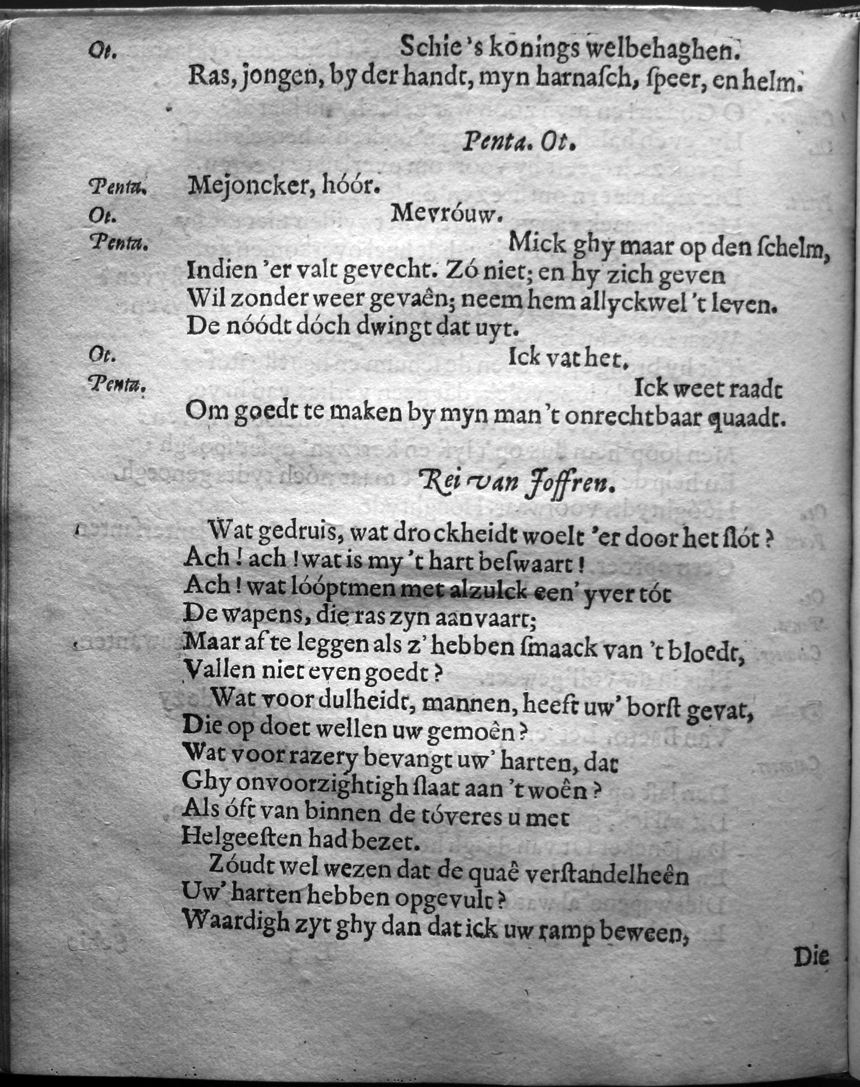 Ot. Schie's konings welbehaghen.
Ras, jongen, by der handt, myn harnaſch, ſpeer, en helm.
Penta. Ot.
Penta. Mejoncker, hóór.
Ot. Mevróuw.
Penta. Mick ghy maar op den ſchelm,
Indien 'er valt gevecht. Zó niet; en hy zich geven
Wil zonder weer gevaên; neem hem allyckwel 't leven.
De nóódt dóch dwingt dat uyt.
Ot. Ick vat het.
Penta. Ick weet raadt
Om goedt te maken by myn man 't onrechtbaar quaadt.
Rei van Joffren.
Wat gedruis, wat drockheidt woelt 'er door het ſlót?
Ach! ach! wat is my 't hart beſwaart!
Ach! wat lóóptmen met alzulck een' yver tót
De wapens, die ras zyn aanvaart;
Maar af te leggen als z' hebben ſmaack van 't bloedt,
Vallen niet even goedt?
Wat voor dulheidt, mannen, heeft uw' borſt gevat,
Die op doet wellen uw gemoên?
Wat voor razery bevangt uw' harten, dat
Ghy onvoorzightigh ſlaat aan 't woên?
Als óft van binnen de tóveres u met
Helgeeſten had bezet.
Zóudt wel wezen dat de quaê verſtandelheên
Uw' harten hebben opgevult?
Waardigh zyt ghy dan dat ick uw ramp beween,
Die